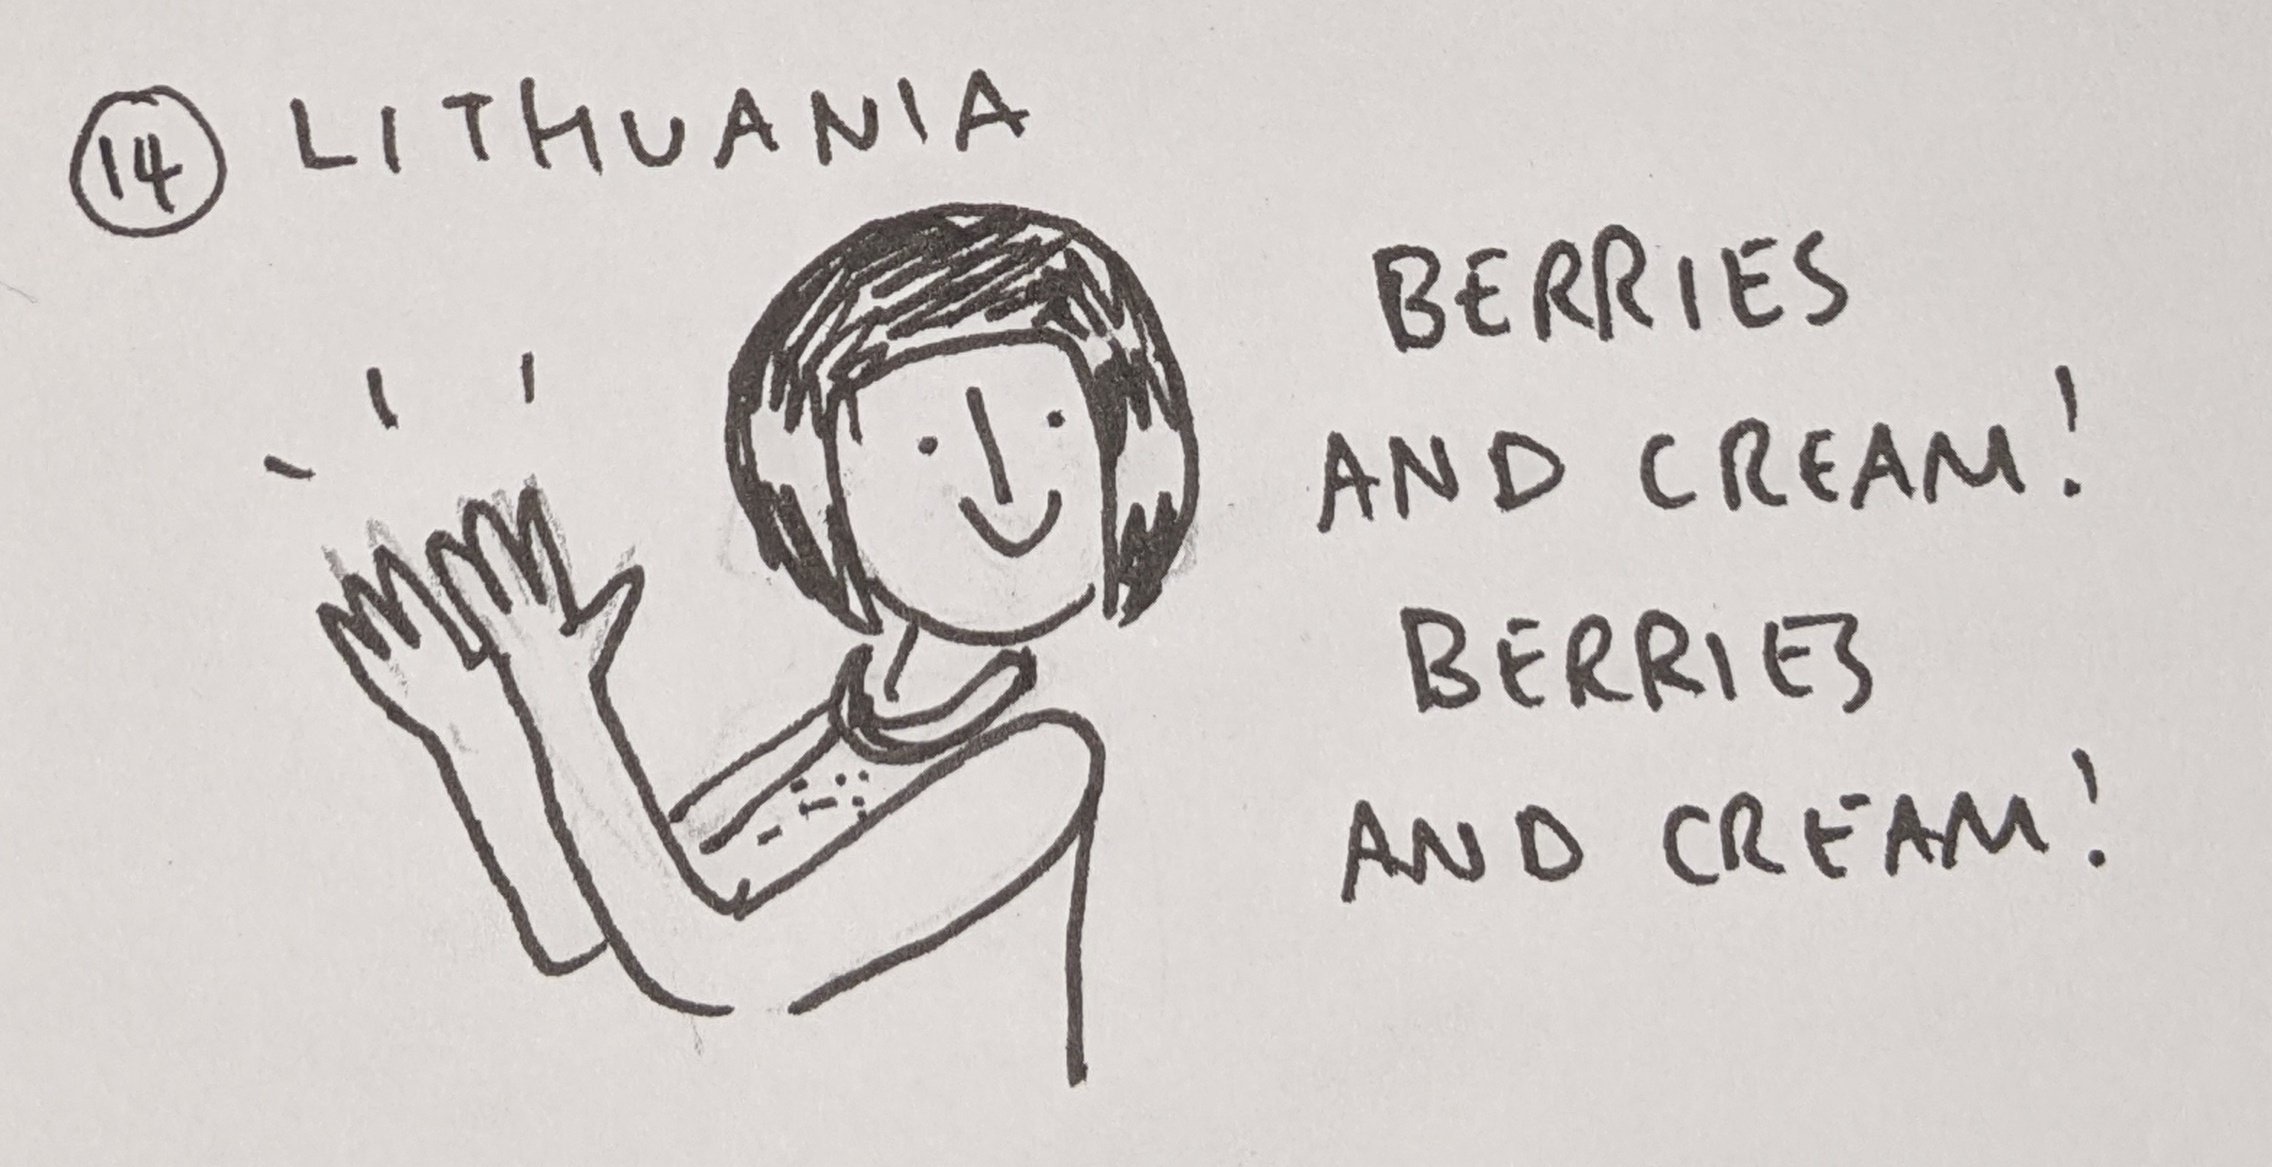 14 LITHUANIA
BERRIES
AND CREAM!
BERRIES
AND CREAM!